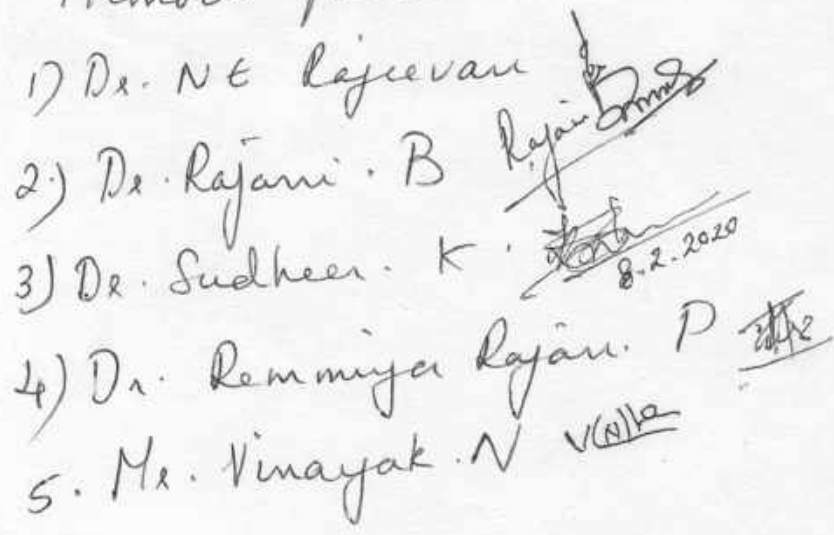 1) Dr. NE Rajeevan
2.) Dr. Rajani. B Rajani
3) Dr. Sudheer. K. 8.2.2020
4) Dr. Remmiya Rajan. P
5. Mr. Vinayak. N